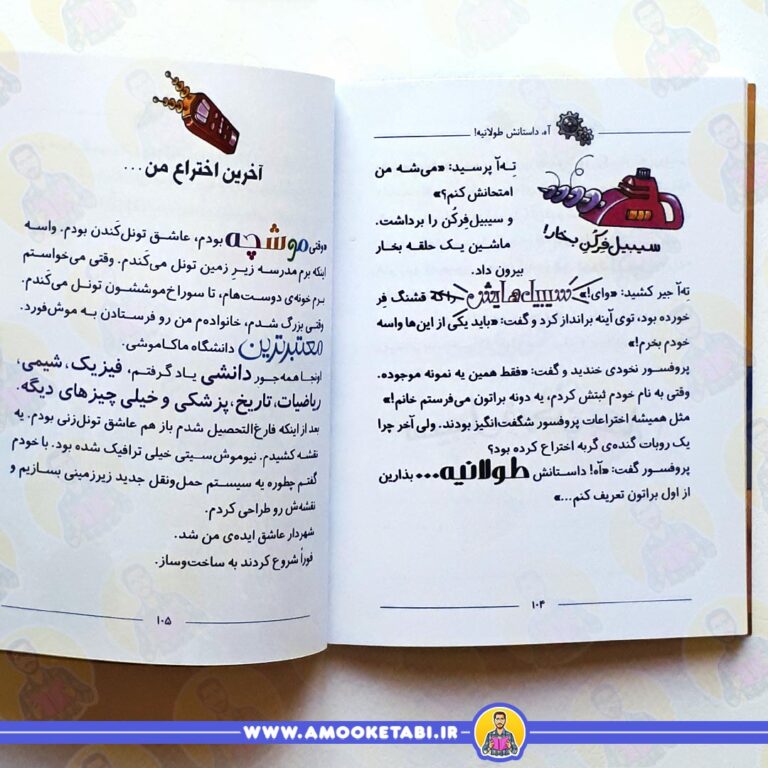 آه، داستانش طولانیه!
تِه‌آ پرسید: «می‌شه من
امتحانش کنم؟»
و سیبیل‌فِرکُن را برداشت.
ماشین یک حلقه بخار
بیرون داد.
سیبیل‌فِرکُن بخار!
تِه‌آ جیر کشید: «وای!» سیبیل‌هایش که قشنگ فِر
خورده بود، توی آینه برانداز کرد و گفت: «باید یکی از این‌ها واسه
خودم بخرم!»
پروفسور نخودی خندید و گفت: «فقط همین یه نمونه موجوده.
وقتی به نام خودم ثبتش کردم، یه دونه براتون می‌فرستم خانم!»
مثل همیشه اختراعات پروفسور شگفت‌انگیز بودند. ولی آخر چرا
یک روبات گنده‌ی گربه اختراع کرده بود؟
پروفسور گفت: «آه! داستانش طولانیه... بذارین
از اول براتون تعریف کنم...»
۱۰۴
آخرین اختراع من...
«وقتی موشچه بودم، عاشق تونل‌کَندن بودم. واسه
اینکه برم مدرسه زیرِ زمین تونل می‌کَندم. وقتی می‌خواستم
برم خونه‌ی دوست‌هام، تا سوراخ‌موششون تونل می‌کَندم.
وقتی بزرگ شدم، خانواده‌م من رو فرستادن به موش‌فورد.
معتبرترین دانشگاه ماکاموشی.
اونجا همه‌جور دانشی یاد گرفتم، فیزیک، شیمی،
ریاضیات، تاریخ، پزشکی و خیلی چیزهای دیگه.
بعد از اینکه فارغ‌التحصیل شدم باز هم عاشق تونل‌زنی بودم. یه
نقشه کشیدم. نیوموش‌سیتی خیلی ترافیک شده بود. با خودم
گفتم چطوره یه سیستم حمل‌ونقل جدید زیرزمینی بسازیم و
نقشه‌ش رو طراحی کردم.
شهردار عاشق ایده‌ی من شد.
فوراً شروع کردند به ساخت‌وساز.
۱۰۵
WWW.AMOOKETABI.IR